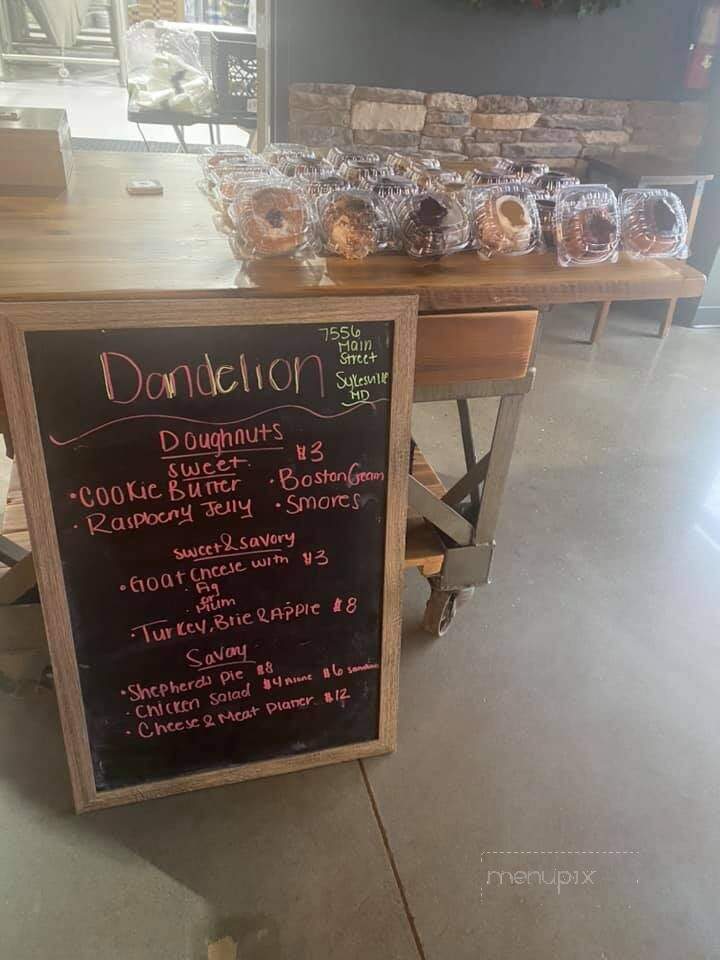 Dandelion
7556
Main
Street
Sykesville
MD
Doughnuts
Sweet $3
• Cookie Butter • Boston Cream
• Raspberry Jelly • Smores
Sweet & Savory
• Goat Cheese with $3
• Fig
or
• Plum
• Turkey, Brie & Apple $8
Savory
• Shepherds Pie $8
• Chicken Salad $4 alone $6 sandwi
• Cheese & Meat Platter $12
menupix